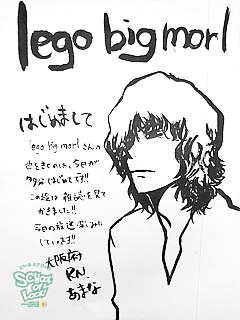 lego big morl
はじめまして
lego big morlさんの
曲をきくのは、今日が
多分はじめてです!!
この絵は雑誌を見て
かきました!!
今日の放送楽しみに
しています!!
大阪府
RN.
あまな
SCHOOL
OF
LOCK!